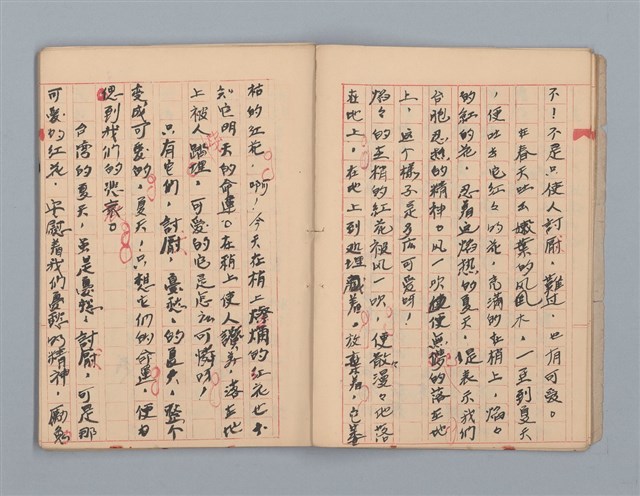 不！不足使人討厭，難过，也有可爱。
在春天吐出嫩葉的凤凰木，一旦到夏天
，便吐出它紅々的花，充滿的在梢上，焰々
的紅的花，忍着血焰热的夏天，是表示我們
台胞忍热的精神。风一吹便無惜的落在地
上，这个樣子是多么可爱呀！
焰々的在梢的紅花被风一吹，便散漫々地落
在地上，在地上到处埋着，放棄着，
枯的紅花，啊！今天在梢上燦爛的紅花也不
知它明天的命運。在梢上使人讚美，落在地
上被人踏埋，可爱的它是怎么可憐呀，
只有它們，討厭，憂愁，的夏天，整个
变成可爱的，夏天！只想它們的命運，便力
想到我們的後裔。
台湾的夏天，虽是憂愁，討厭，可是那
可爱的紅花，安慰着我們憂愁的精神，勵勉